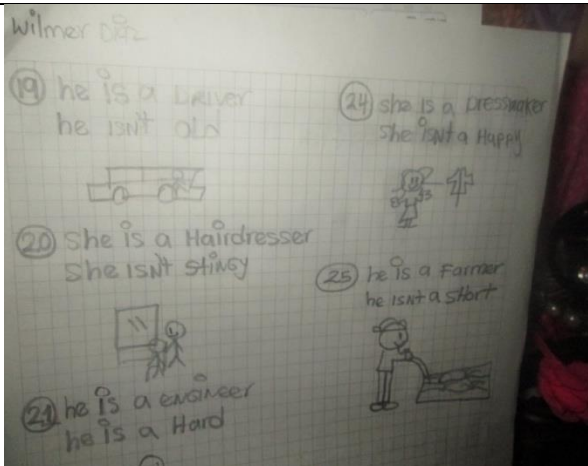 Wilmer Díaz
19 he is a Driver
he isn't old
20 she is a Hairdresser
she isn't stingy
21 he is a engineer
he is a Hard
24 she is a Dressmaker
she isn't a Happy
25 he is a Farmer
he isn't a short